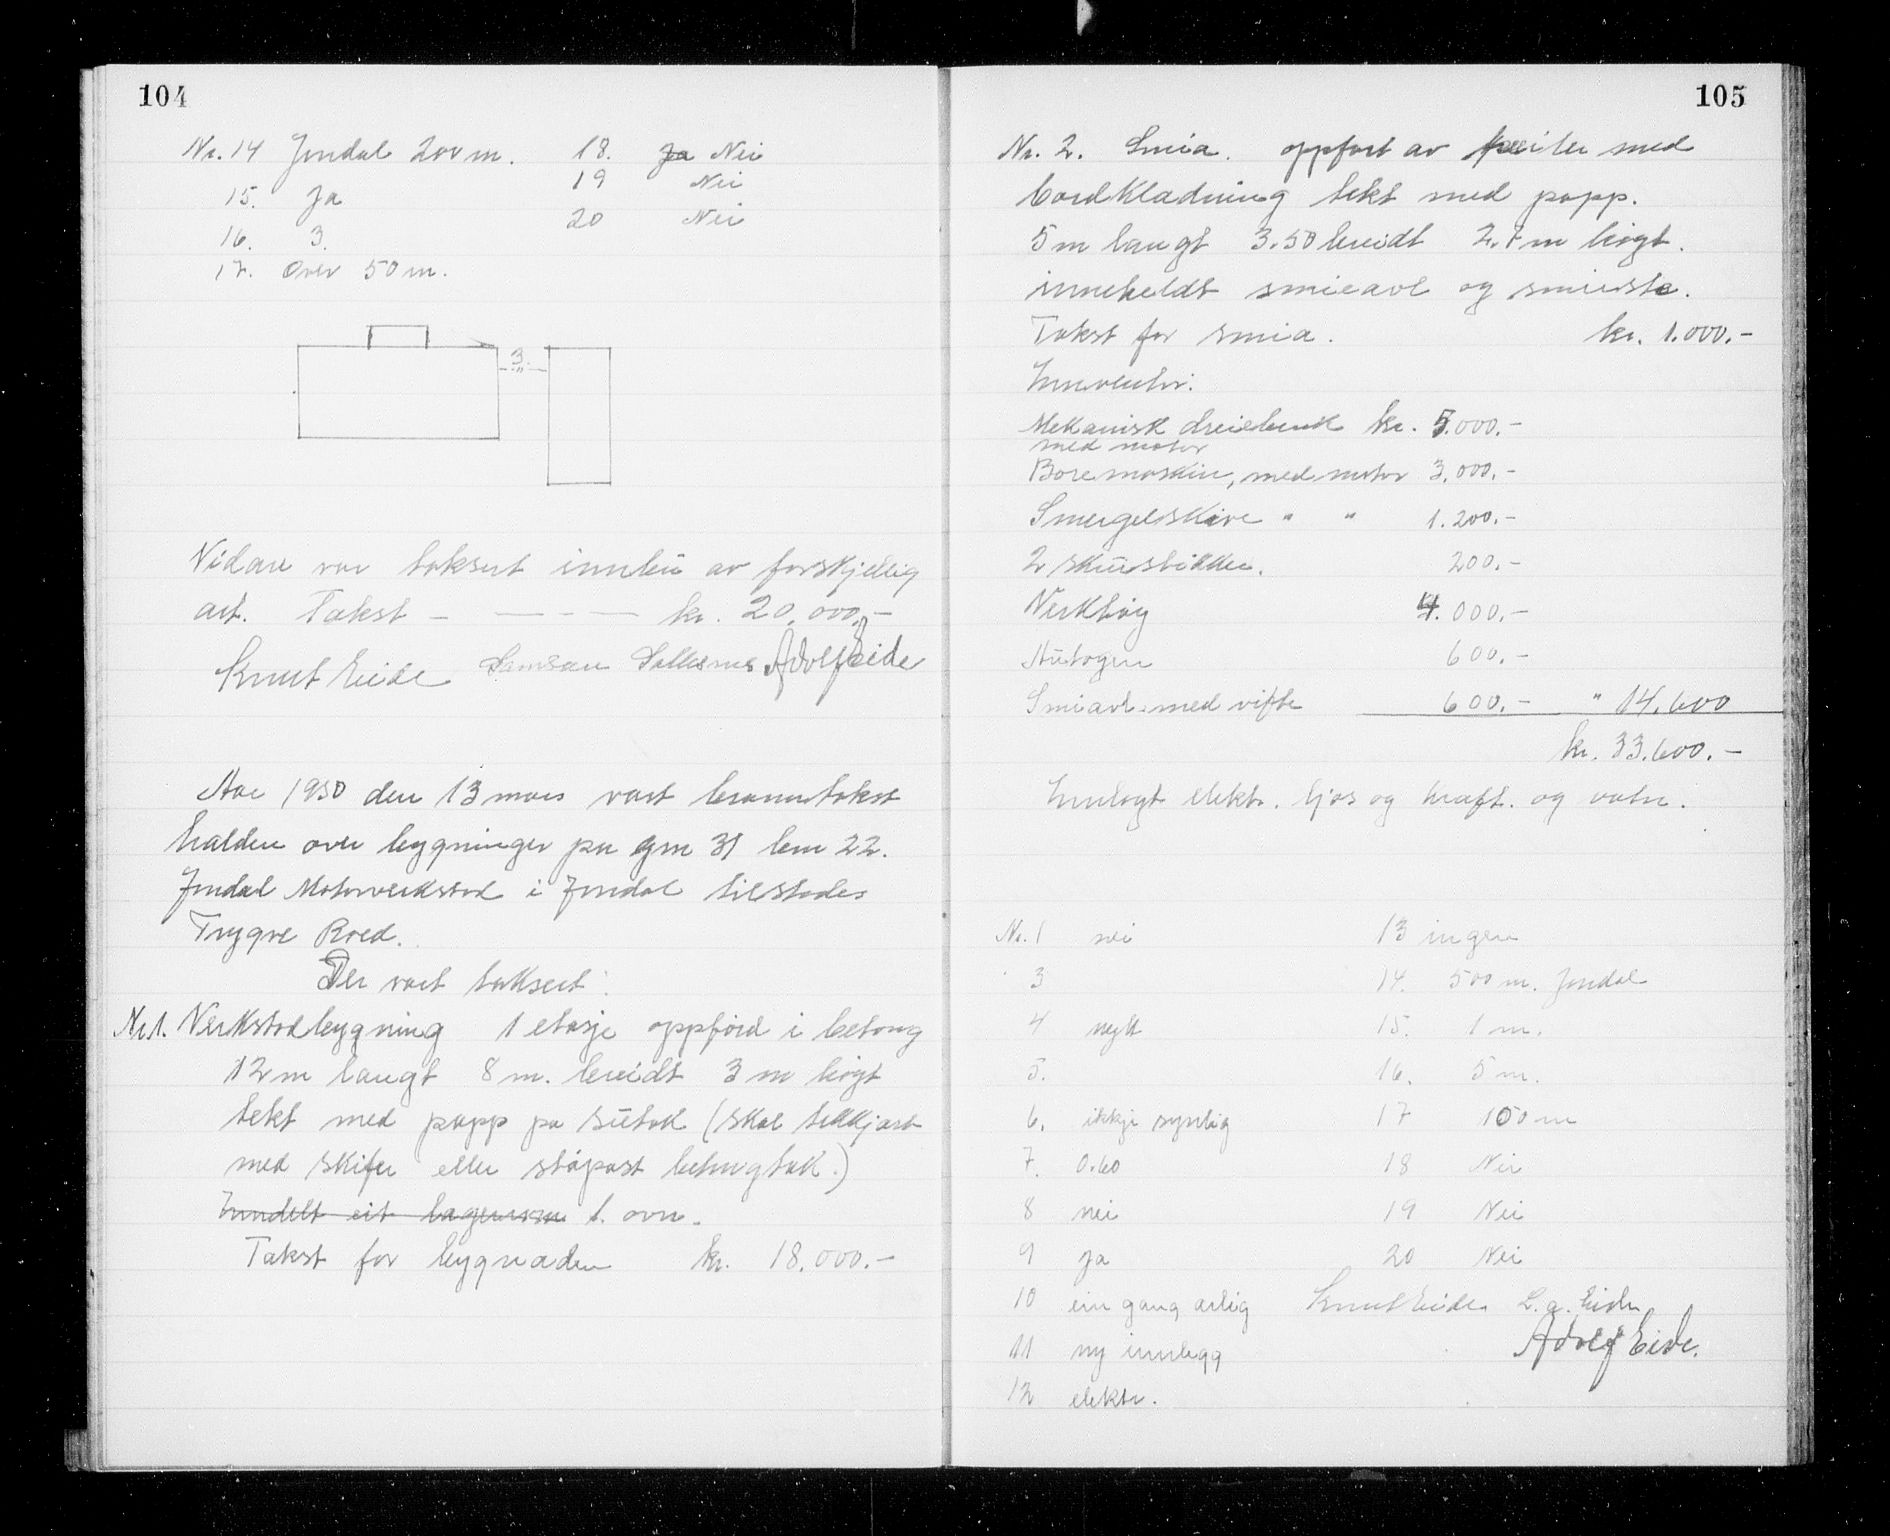 104
Nr. 14 Jondal 200 m.
15. Ja
16. 3.
17. Over 50 m.
18. Ja Nei
19 Nei
20 Nei
3 m
Vidare var taksert innbu av forskjellig
art. Takst — — — — kr. 20.000.-
Knut Eide Samson Adolf Eide
Aar 1950 den 13 mars vart branntakst
halden over bygninger pa gnr 31 bnr 22.
Jondal Motorverkstad i Jondal tilstades
Trygve Roed.
Der vart taksert:
Nr 1. Verkstadbygning 1 etasje oppførd i betong
12 m langt 8 m. breidt 3 m høgt
tekt med papp pa sutak (skal tekkjast
med skifer eller støpast betongtak.)
Inndelt eit lagerrom 1. ovn.
Takst for bygnaden kr. 18.000.-
105
Nr. 2. Smia. oppført av med
bordkladning tekt med papp.
5 m langt 3.50 breidt 2.7 m høgt.
inneheldt smieavl og smieste.
Takst for smia. kr. 1.000.-
Inventar:
Mekanisk dreiebenk kr. 5.000.-
med motor
Boremaskin, med motor 3.000.-
Smergelskive " " 1.200.-
2 skrustikker. 200.-
Verktøy 4.000.-
Autogen 600.-
Smiavl. med vifte 600.- " 14.600
kr. 33.600.-
Innlagt elektr. ljos og kraft. og vatn.
Nr. 1 nei
3
4 nytt
5.
6. ikkje synlig
7. 0.60
8 nei
9 ja
10 ein gang arlig
11 ny innlegg
12 elektr.
13 ingen
14. 500 m. Jondal
15. 1 m.
16. 5 m.
17 100 m
18 Nei
19 Nei
20 Nei
Knut Eide. L. a. Eide
Adolf Eide.